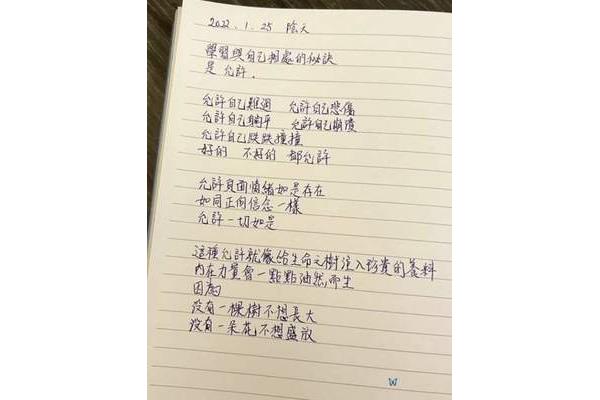 2022.1.25 陰天
學習與自己相處的秘訣
是 允許.
允許自己難過 允許自己悲傷
允許自己躺平 允許自己崩潰
允許自己跌跌撞撞
好的 不好的 都允許
允許負面情緒如是存在
如同正向信念一樣
允許一切如是
這種允許就像給生命之樹注入珍貴的養料
內在力量會一點點油然而生
因為
沒有一棵樹不想長大
沒有一朵花不想盛放